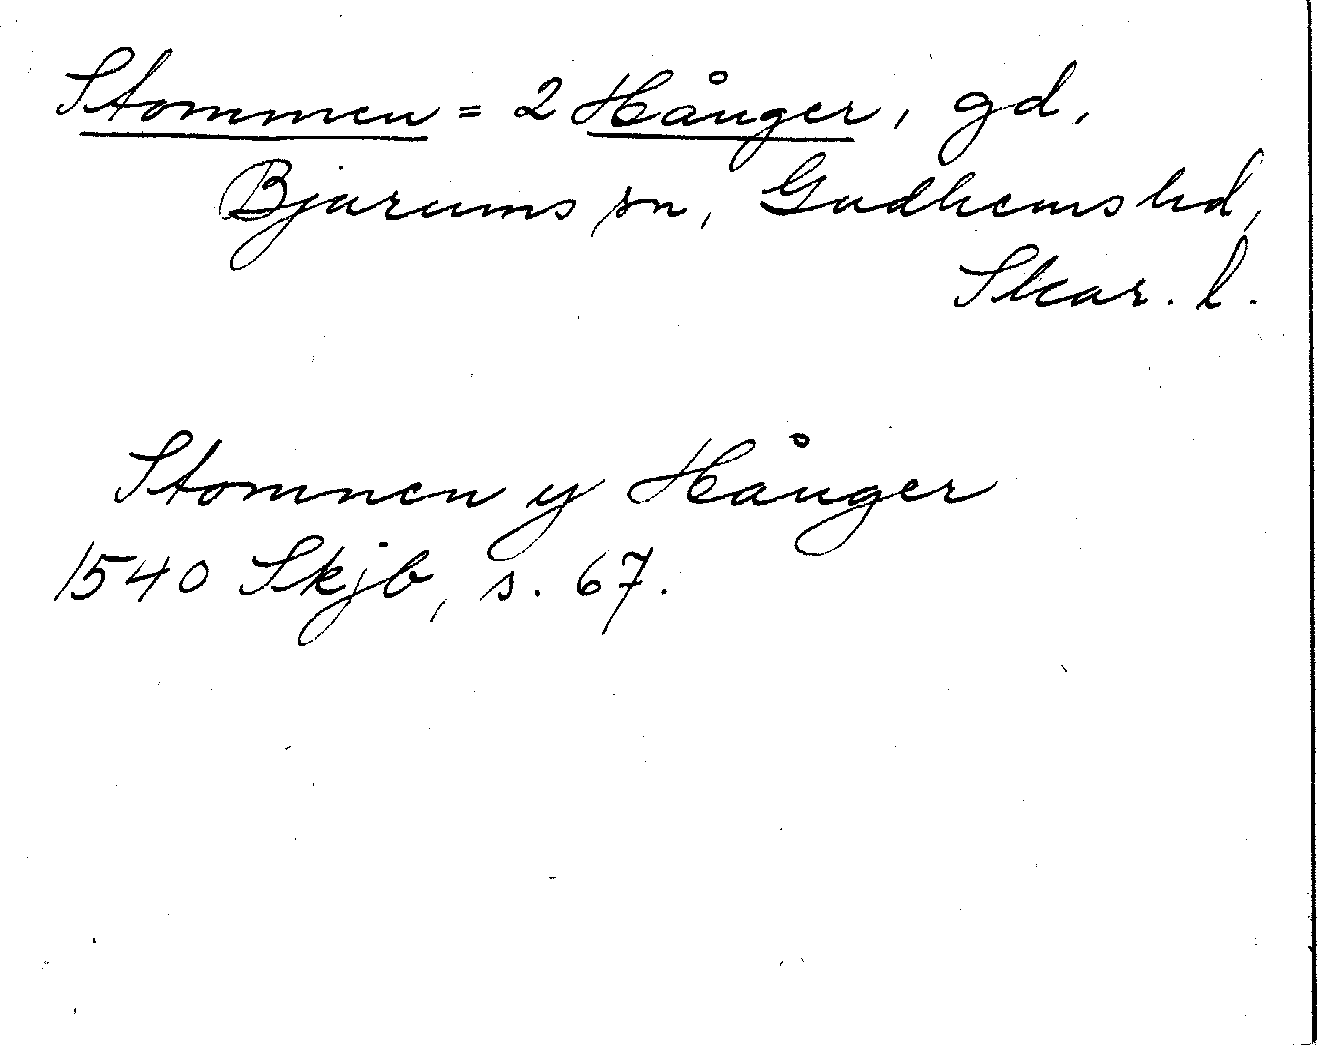 Stommen = 2 Hånger, gd,
Bjurums sn, Gudhems hd,
Skar. l.
Stomnen y Hånger
1540 Skjb, s. 67.